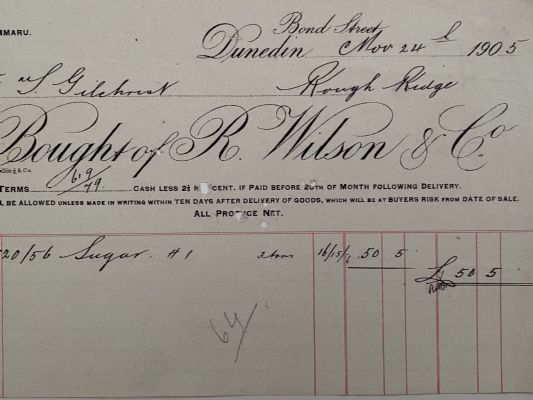 MARU.
Bond Street
Dunedin Nov 24th 1905
S. Gilchrist Rough Ridge
Bought of R. Wilson & Co.
& Co.
TERMS CASH LESS 2½ PER CENT. IF PAID BEFORE 20TH OF MONTH FOLLOWING DELIVERY.
BE ALLOWED UNLESS MADE IN WRITING WITHIN TEN DAYS AFTER DELIVERY OF GOODS, WHICH WILL BE AT BUYERS RISK FROM DATE OF SALE.
ALL PRODUCE NET.
20/56 Sugar #1 3 tons 16/15/- 50 5
£50 5
64/